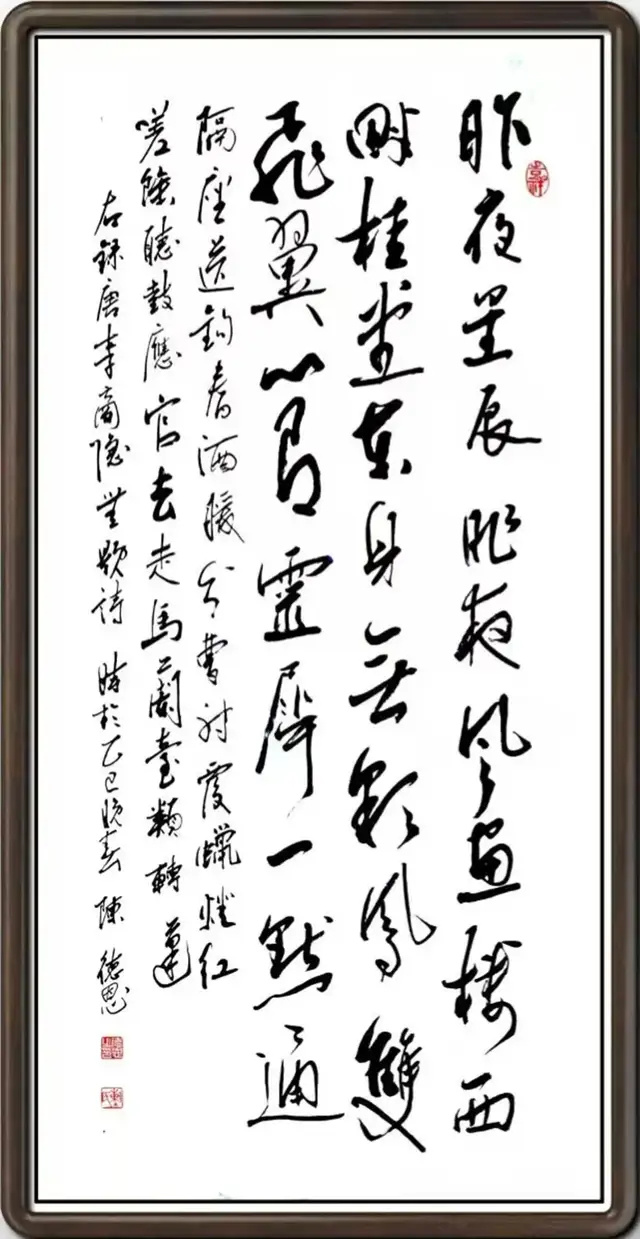 昨夜星辰昨夜風畫樓西
畔桂堂東身無彩鳳雙
飛翼心有靈犀一點通
隔座送鉤春酒暖分曹射覆蠟燈紅
嗟餘聽鼓應官去走馬蘭臺類轉蓬
右錄唐李商隱無題詩 時於乙巳晚春 陳德恩